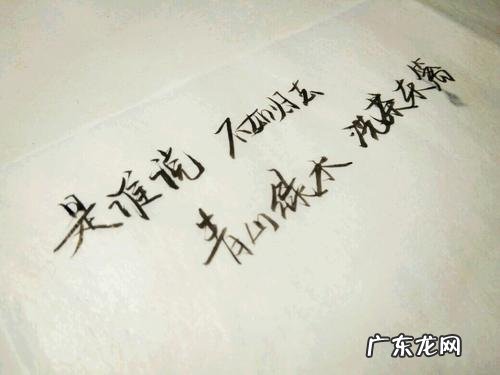 是谁说 不如归去
青山绿水 浣茶东篱
广东龙网